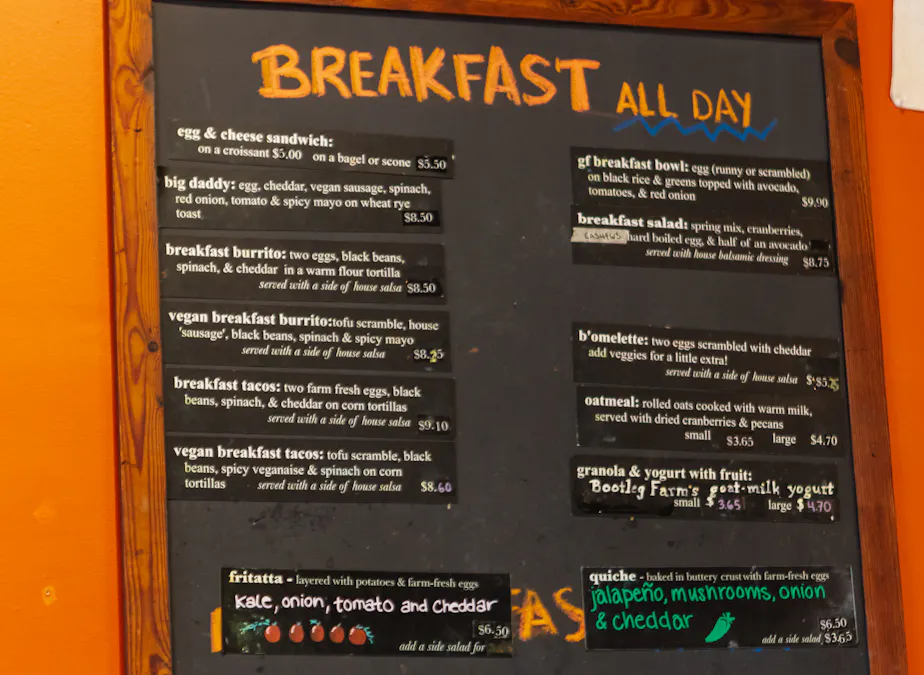 BREAKFAST ALL DAY
egg & cheese sandwich:
on a croissant $5.00 on a bagel or scone $5.50
big daddy: egg, cheddar, vegan sausage, spinach,
red onion, tomato & spicy mayo on wheat rye
toast $8.50
breakfast burrito: two eggs, black beans,
spinach, & cheddar in a warm flour tortilla
served with a side of house salsa $8.50
vegan breakfast burrito:tofu scramble, house
'sausage', black beans, spinach & spicy mayo
served with a side of house salsa $8.25
breakfast tacos: two farm fresh eggs, black
beans, spinach, & cheddar on corn tortillas
served with a side of house salsa $9.10
vegan breakfast tacos: tofu scramble, black
beans, spicy veganaise & spinach on corn
tortillas served with a side of house salsa $8.60
gf breakfast bowl: egg (runny or scrambled)
on black rice & greens topped with avocado,
tomatoes, & red onion $9.90
breakfast salad: spring mix, cranberries,
cashews hard boiled egg, & half of an avocado
served with house balsamic dressing $8.75
b'omelette: two eggs scrambled with cheddar
add veggies for a little extra!
served with a side of house salsa $5.25
oatmeal: rolled oats cooked with warm milk,
served with dried cranberries & pecans
small $3.65 large $4.70
granola & yogurt with fruit:
Bootleg Farm's goat-milk yogurt
small $3.65 large $4.70
fritatta - layered with potatoes & farm-fresh eggs
Kale, onion, tomato and Cheddar
$6.50
add a side salad for
FAS
quiche - baked in buttery crust with farm-fresh eggs
jalapeño, mushrooms, onion
& cheddar
$6.50
add a side salad $3.65